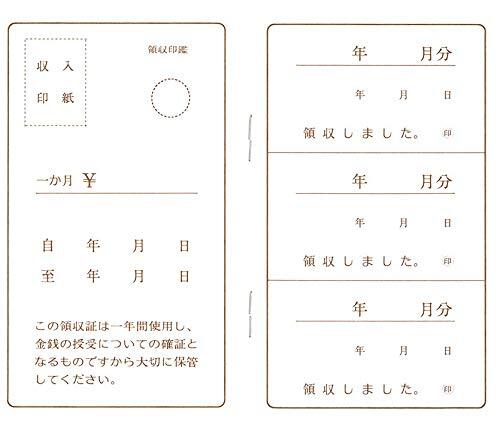 収入
印紙
領収印鑑
一か月 ¥
自 年 月 日
至 年 月 日
この領収証は一年間使用し、
金銭の授受についての確証と
なるものですから大切に保管
してください。
年 月分
年 月 日
領収しました。 印
年 月分
年 月 日
領収しました。 印
年 月分
年 月 日
領収しました。 印